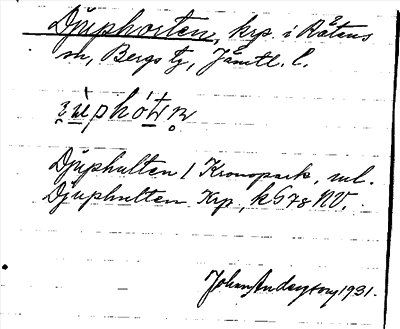 Djuphorten, krp. i Rätans
sn, Bergs tg, Jämtl. l.
Djuphulten / Kronopark, ml.
Djuphulten Krp, k G78 NV.
Johan Anderson 1931.